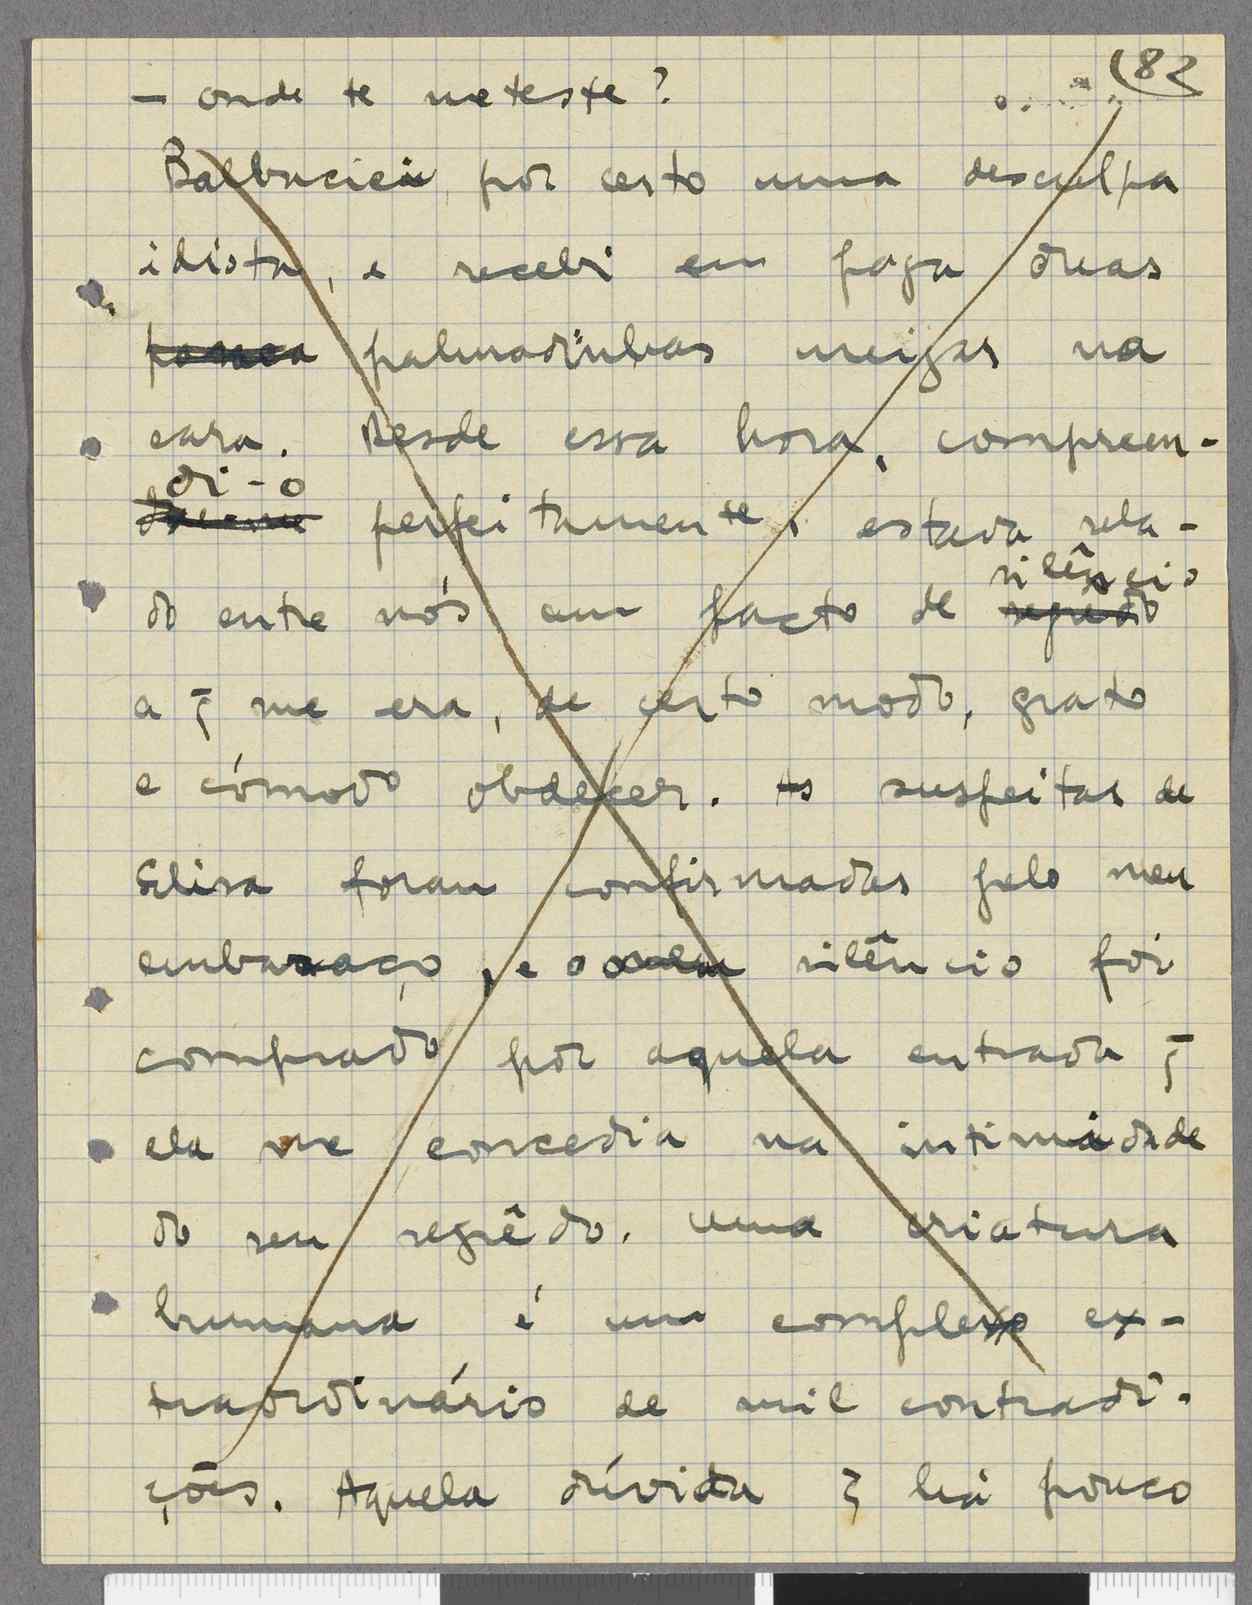 182
— onde te meteste?
Balbuciei por certo uma desculpa
idiota, e recebi em paga duas
palmadinhas meigas na
cara. Desde essa hora, compreen-
di-o
perfeitamente, estava sela-
silêncio
do entre nós um pacto de segrêdo
a q̃ me era, de certo modo, grato
e cómodo obdecer. As suspeitas de
Elisa foram confirmadas pelo meu
embaraço, e o silêncio foi
comprado por aquela entrada q̃
ela me concedia na intimidade
do seu segrêdo. Uma criatura
humana é um complexo ex-
traordinário de mil contradi-
ções. Aquela dúvida q̃ há pouco